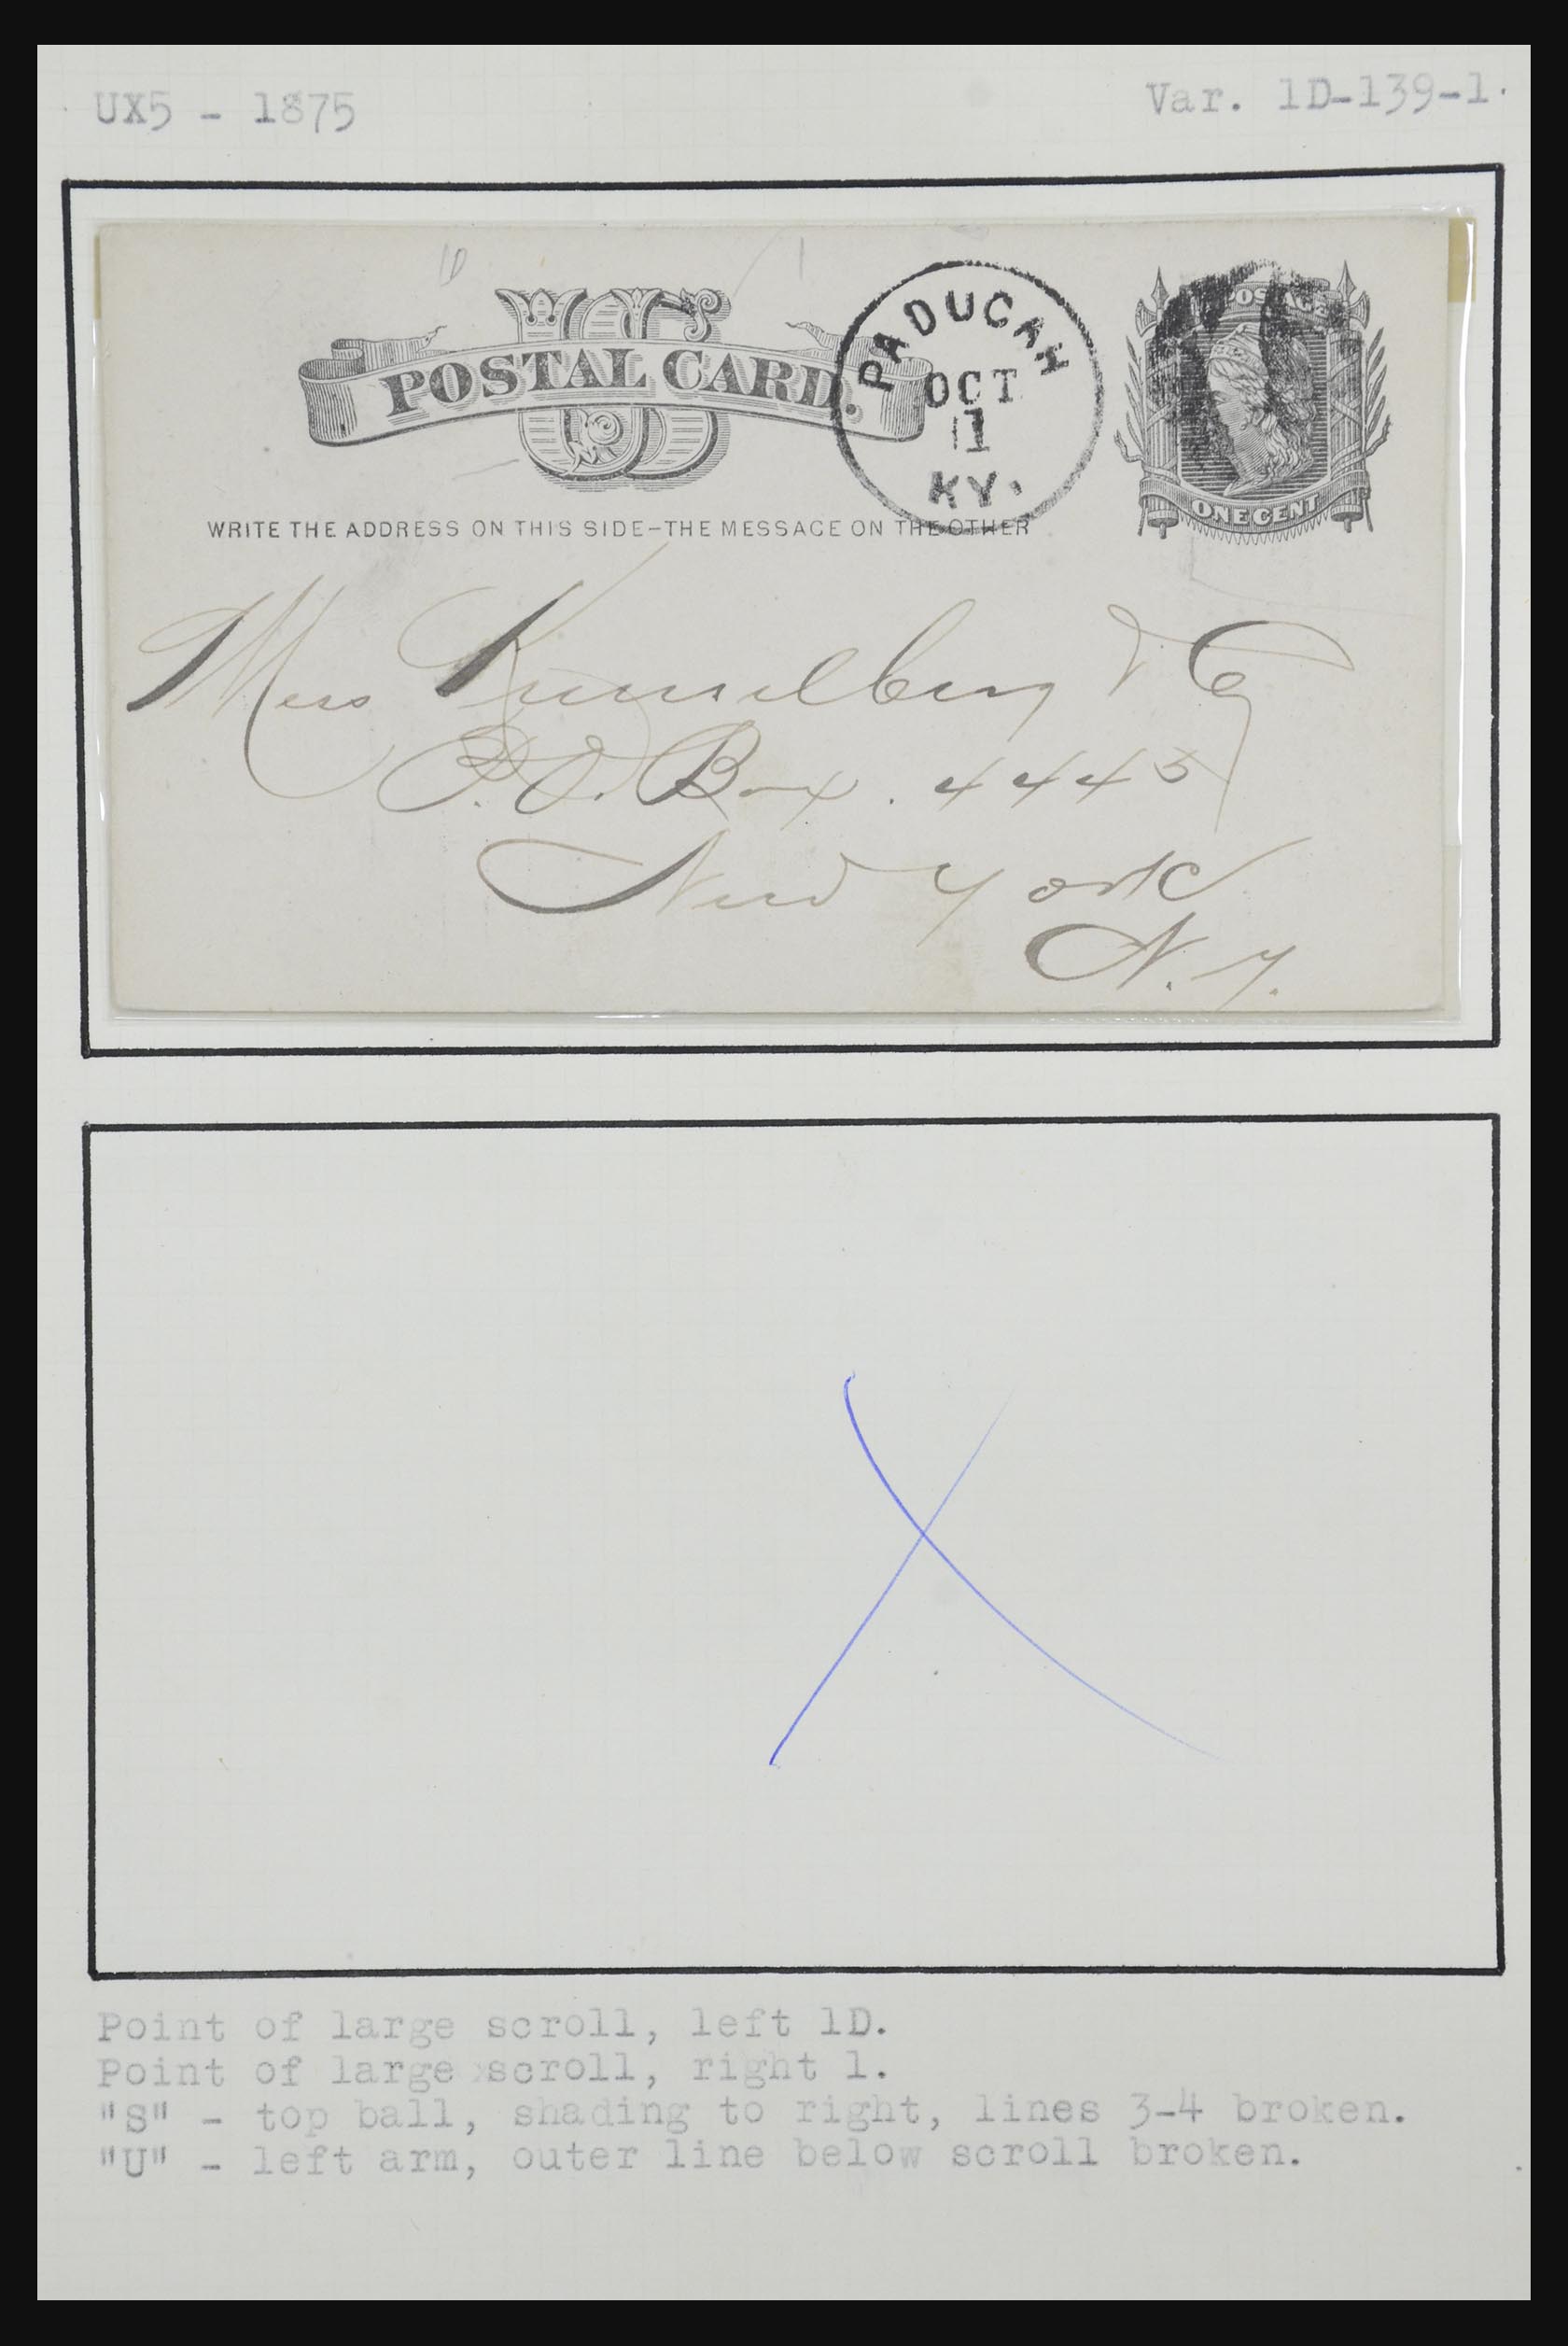 UX5 - 1875
Var. 1D-139-1.
1D
1
POSTAL CARD.
US
PADUCAH
OCT
11
KY.
POSTAGE
ONE CENT
WRITE THE ADDRESS ON THIS SIDE–THE MESSAGE ON THE OTHER
Mess & Co
P.O. Box. 4445
New York
N.Y.
Point of large scroll, left 1D.
Point of large scroll, right 1.
"S" - top ball, shading to right, lines 3-4 broken.
"U" - left arm, outer line below scroll broken.